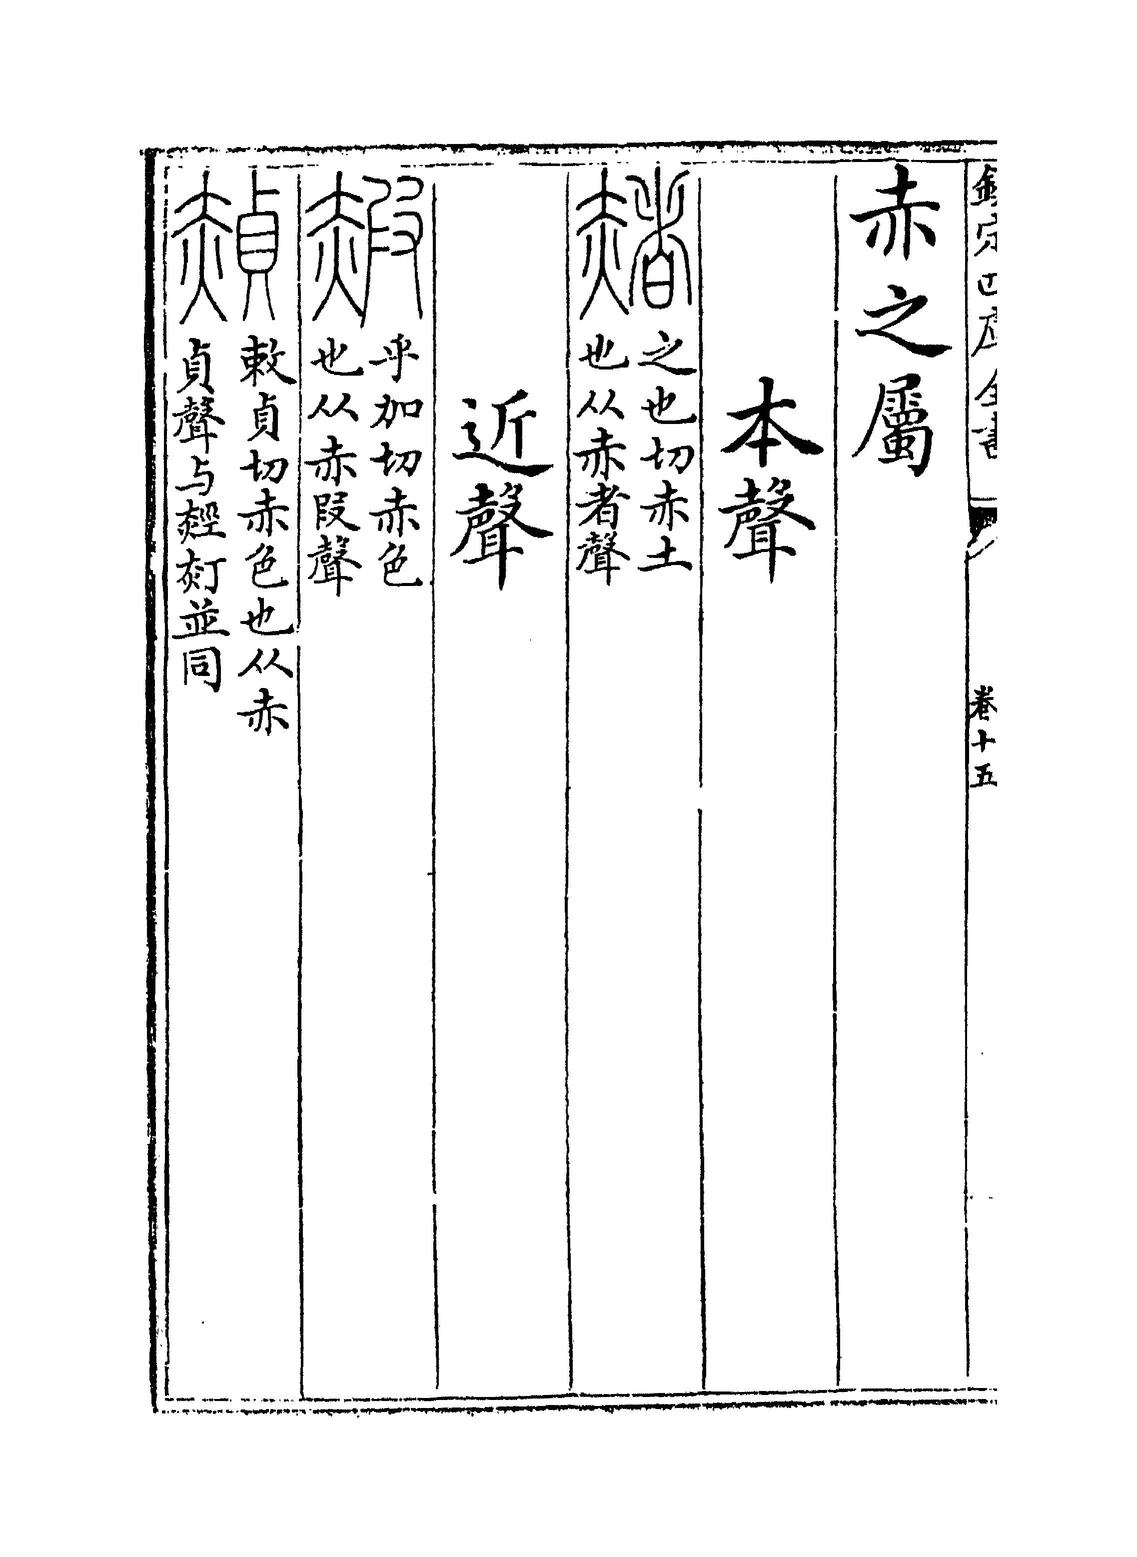 欽定四庫全書
卷十五
赤之屬
本聲
赭
之也切赤土
也从赤者聲
近聲
赮
乎加切赤色
也从赤叚聲
赬
敕貞切赤色也从赤
貞聲与䞓𧹛並同